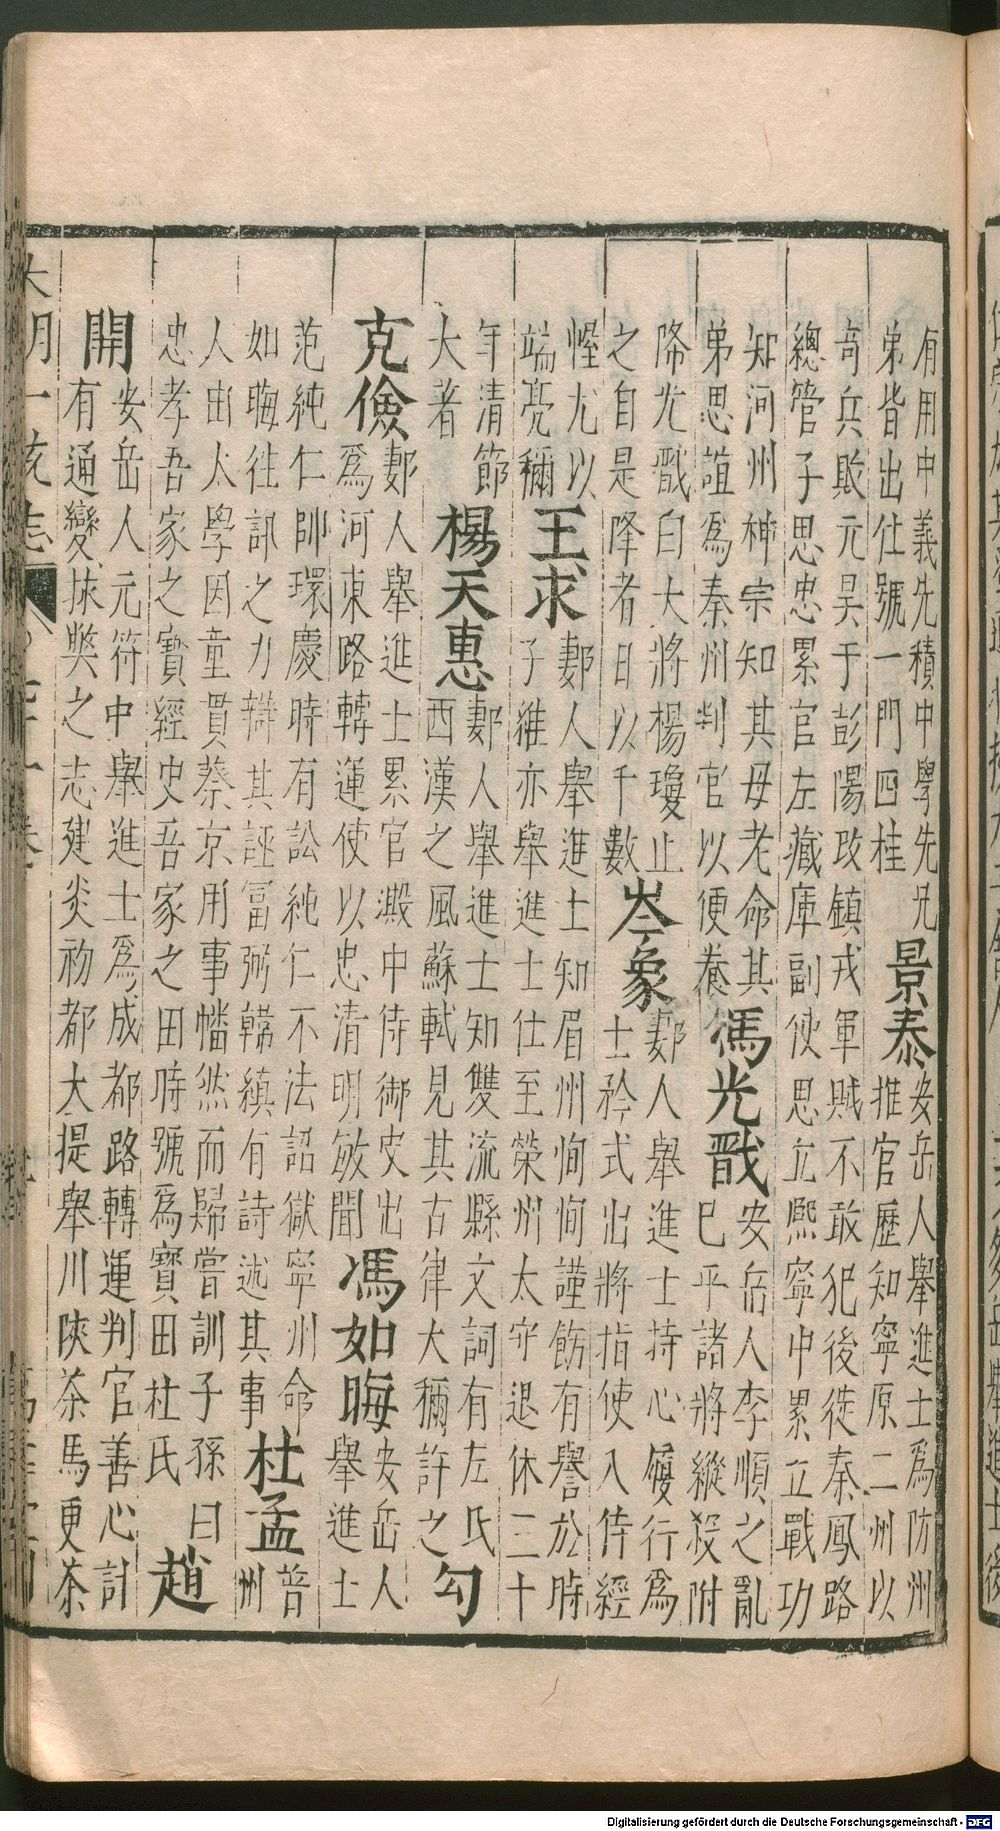 有用中義先積中學先兄
弟皆出仕號一門四桂
景泰
安岳人舉進士爲防州
推官歷知寧原二州以
奇兵敗元昊于彭陽改鎮戎軍賊不敢犯後徙秦鳳路
總管子思忠累官左藏庫副使思立熙寧中累立戰功
知河州神宗知其母老命其
弟思誼爲秦州判官以便養
馮光戩
安岳人李順之亂
巳平諸將縱殺附
降光戩白大將楊瓊止
之自是降者日以千數
岑象求
郪人舉進士持心履行爲
士矜式出將指使入侍經
幄尤以
端亮稱
王求
郪人舉進士知眉州恂恂謹飭有譽於時
子維亦舉進士仕至榮州太守退休三十
年清節
大著
楊天惠
郪人舉進士知雙流縣文詞有左氏
西漢之風蘇軾見其古律大稱許之
勾
克儉
郪人舉進士累官澱中侍御史出
爲河東路轉運使以忠清明敏聞
馮如晦
安岳人
舉進士
范純仁帥環慶時有訟純仁不法詔獄寧州命
如晦往訊之力辯其誣富弼韓縝有詩述其事
杜孟
普
州
人由太學因童貫蔡京用事幡然而歸嘗訓子孫曰
忠孝吾家之寶經史吾家之田時號爲寶田杜氏
趙
開
安岳人元符中舉進士爲成都路轉運判官善心計
有通變捄弊之志建炎初都大提舉川陝茶馬更茶
大明一統志
Digitalisierung gefördert durch die Deutsche Forschungsgemeinschaft - DFG